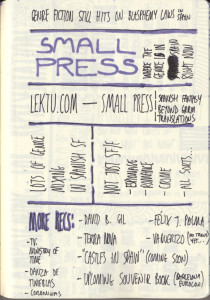 GENRE FICTION STILL HITS ON BLASPHEMY LAWS IN SPAIN
SMALL
PRESS
WHERE THE
GENRE IS IN
SPAIN
RIGHT NOW
LEKTU.COM — SMALL PRESS
SPANISH FANTASY
BEYOND
TRANSLATIONS
LOTS OF GENRE
MIXING
IN SPANISH SF
NOT JUST SFF
- EXPANDING
- ROMANCE
- CRIME
- ALL SORTS...
MORE RECS:
- TV:
MINISTRY OF
TIME
- DANZA DE
TINIEBLAS
- COSMONAUTAS
- DAVID B. GIL
- TERRA NOVA
- "CASTLES IN SPAIN" (COMING SOON)
- UPCOMING SOUVENIR BOOK (BARCELONA
EUROCON)
- FELIX J. PALMA
- VAQUERIZO (NO TRANS
YET...)